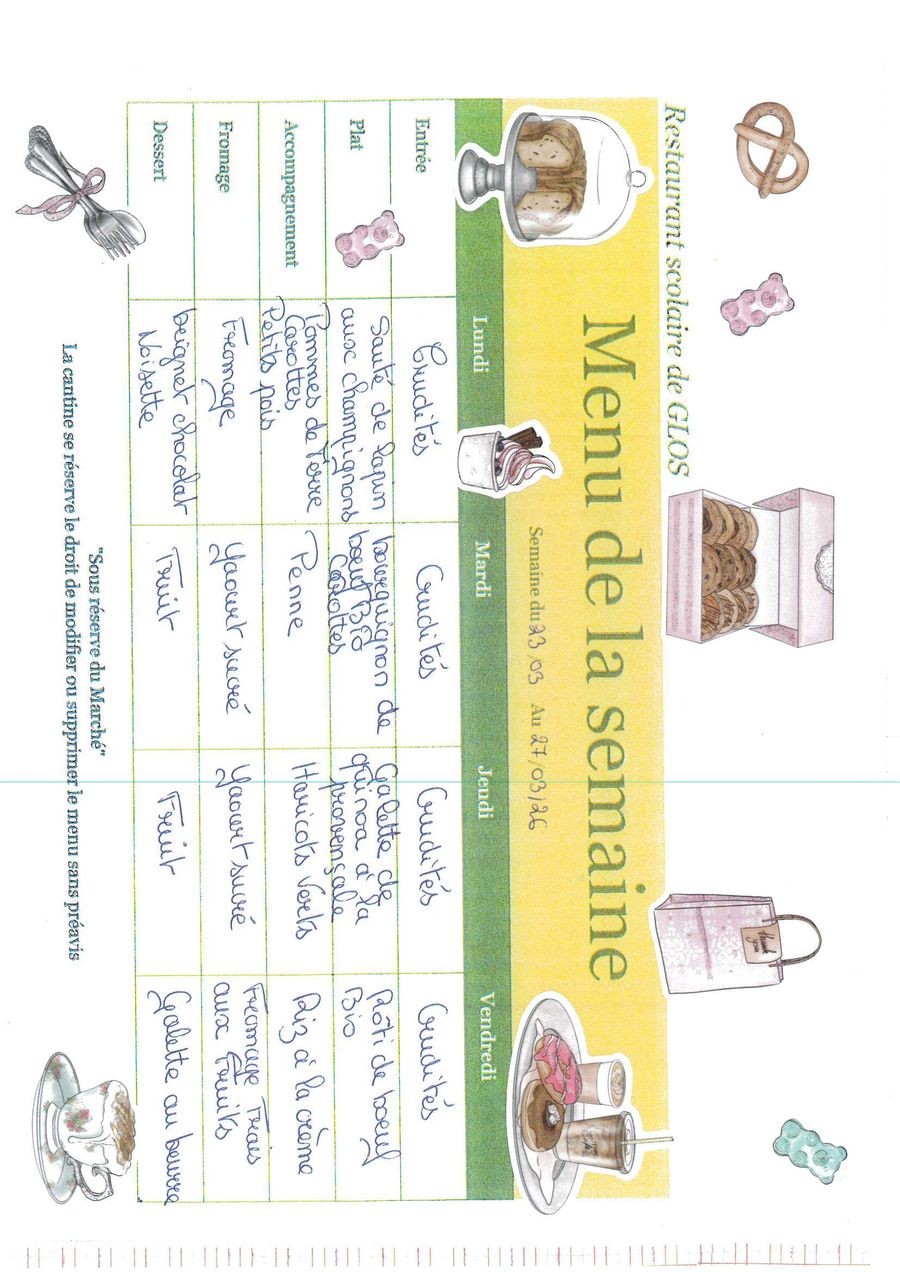 Restaurant scolaire de GLOS
Menu de la semaine
Semaine du 23/03 Au 27/03/26
Lundi Mardi Jeudi Vendredi
Entrée
Crudités
Crudités
Crudités
Crudités
Plat
Sauté de lapin
aux champignons
bourguignon de
boeuf Bio
Carottes
Galette de
quinoa à la
provençale
Rôti de boeuf
Bio
Accompagnement
Pommes de Terre
Carottes
Petits pois
Penne
Haricots verts
Riz à la crème
Fromage
Fromage
Yaourt sucré
Yaourt sucré
Fromage Frais
aux Fruits
Dessert
beignet chocolat
Noisette
Fruit
Fruit
Galette au beurre
"Sous réserve du Marché"
La cantine se réserve le droit de modifier ou supprimer le menu sans préavis
thank
you